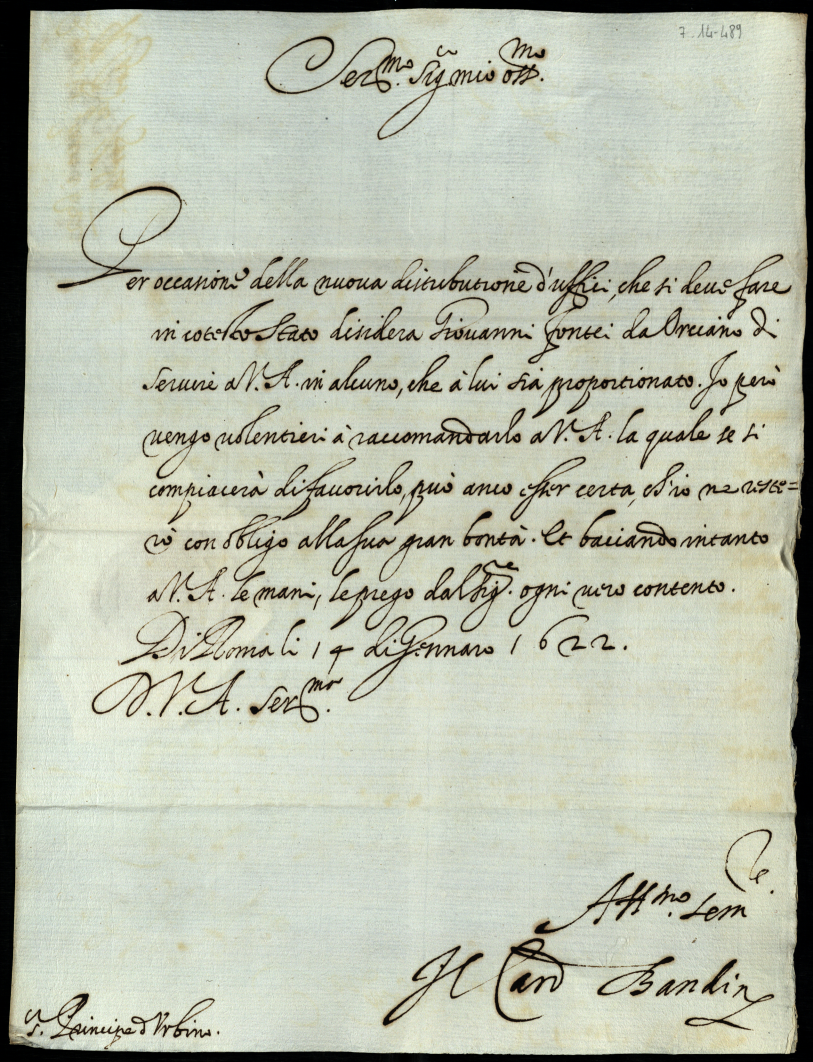 7-14-489
Ser.mo Sig.re mio oss.mo
Per occasione della nuova distributione d'uffici, che si deve fare
in cotesto Stato disidera Giovanni Fontei da Orciano di
servire a V. A. in alcuno, che à lui sia proportionato. Io però
vengo volentieri à raccomandarlo a V. A. la quale se si
compiacerà di favorirlo, può anco esser certa, ch'io ne reste=
rò con obligo alla sua gran bontà. Et baciando intanto
a V. A. le mani, le prego dal Sig.re ogni vero contento.
Di Roma li 14 di Gennaro 1622.
D. V. A. Ser.ma
Aff.mo Ser.re
Il Card Bandin
S. Principe d'Urbino.